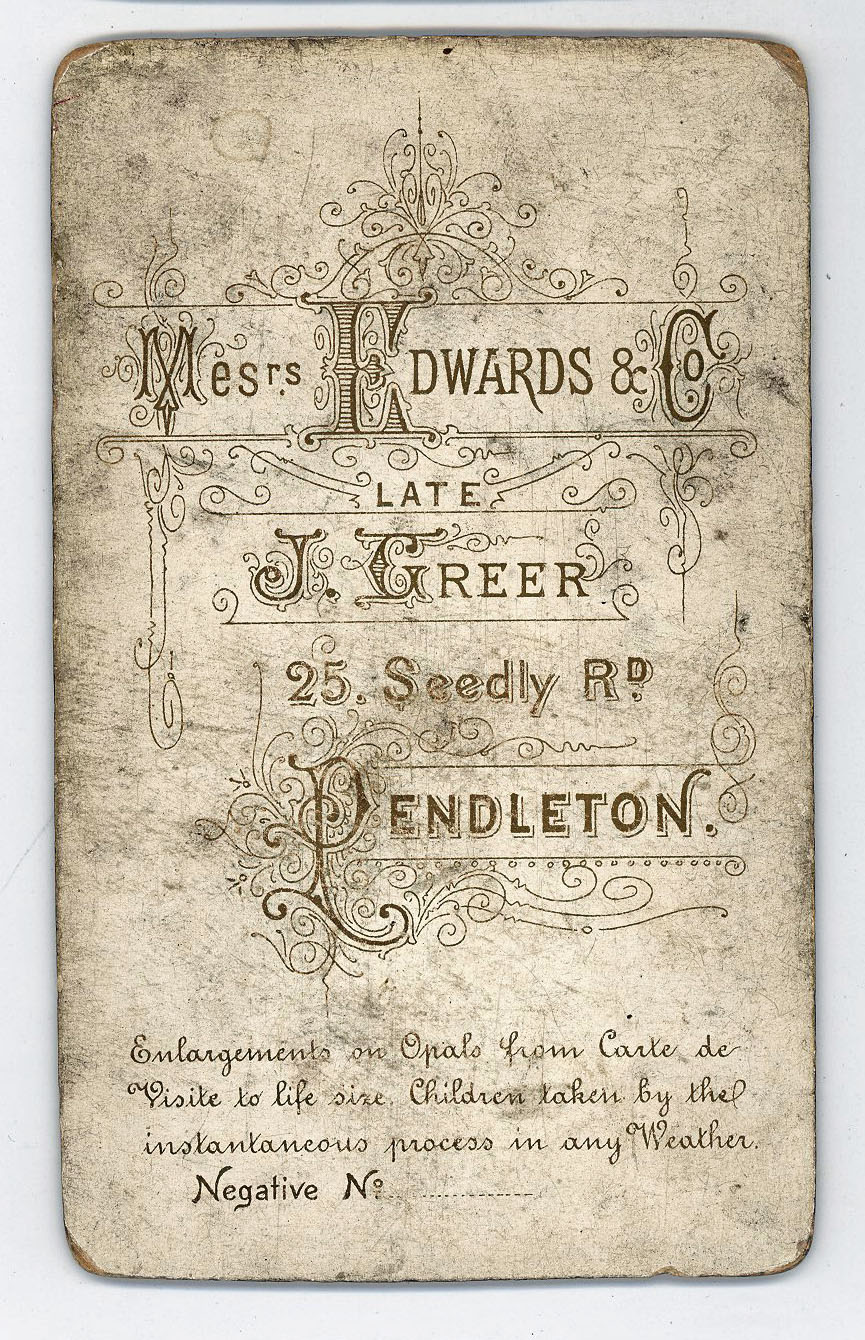 Mesrs EDWARDS & Co
LATE
J. GREER
25. Seedly RD
PENDLETON.
Enlargements on Opals from Carte de
Visite to life size. Children taken by the
instantaneous process in any Weather.
Negative No